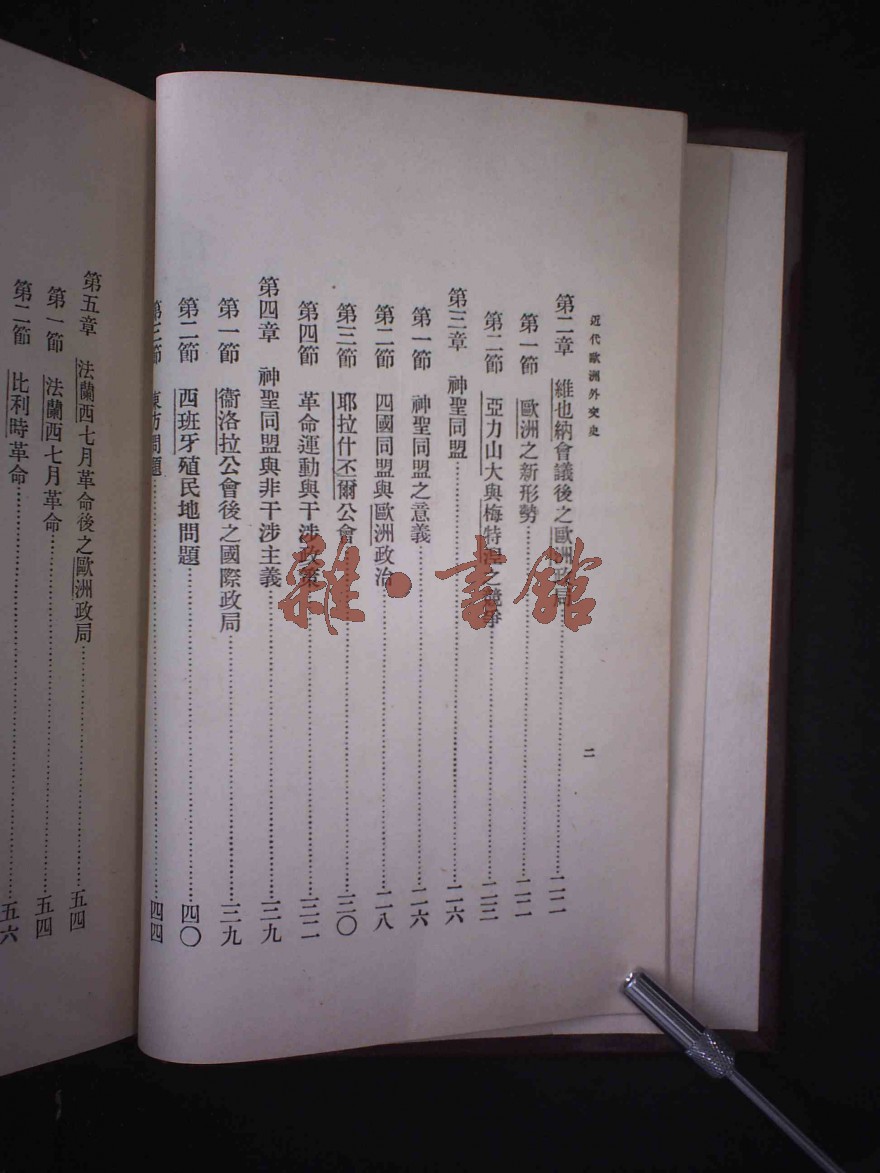 近代歐洲外交史
二
第二章 維也納會議後之歐洲政局……二二
第一節 歐洲之新形勢……二二
第二節 亞力山大與梅特涅之競爭……二三
第三章 神聖同盟……二六
第一節 神聖同盟之意義……二六
第二節 四國同盟與歐洲政治……二八
第三節 耶拉什丕爾公會……三〇
第四節 革命運動與干涉政策……三二
第四章 神聖同盟與非干涉主義……三九
第一節 衞洛拉公會後之國際政局……三九
第二節 西班牙殖民地問題……四〇
第三節 東方問題……四四
第五章 法蘭西七月革命後之歐洲政局……五四
第一節 法蘭西七月革命……五四
第二節 比利時革命……五六
雜·書館